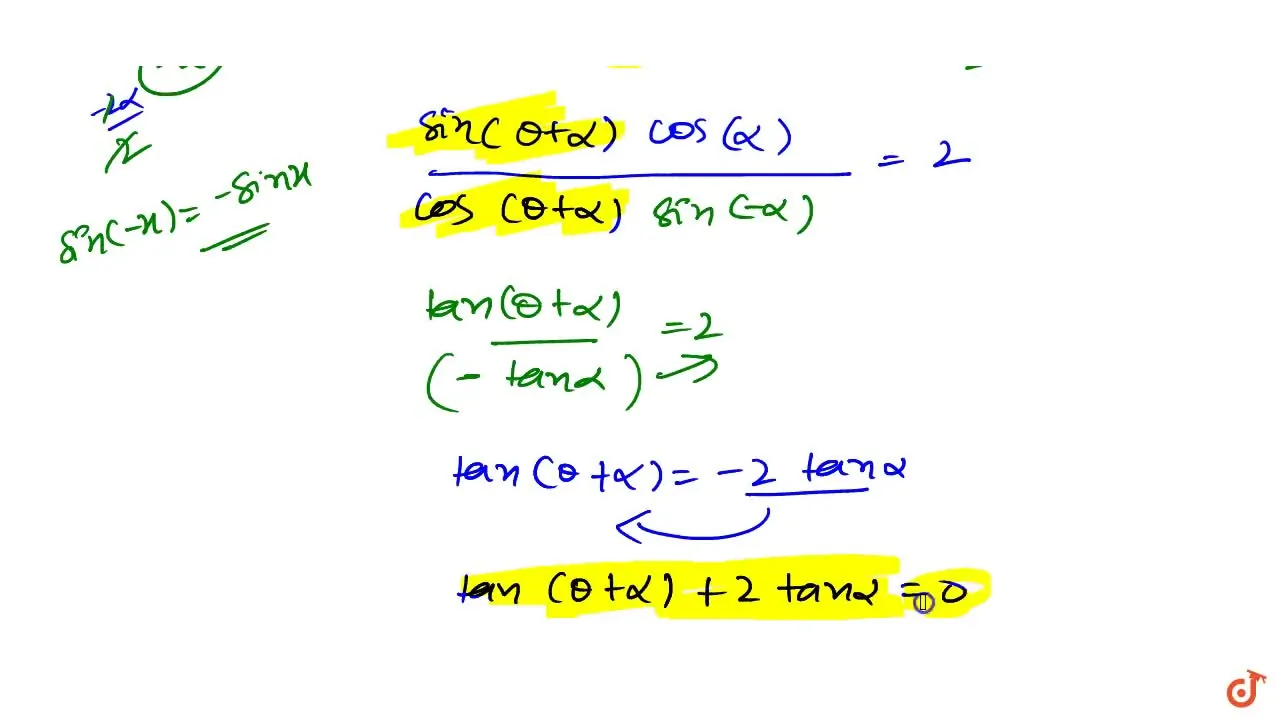 -2α
2
sin(-x) = -sinx
sin(θ+α) cos(α)
cos(θ+α) sin(-α)
= 2
tan(θ+α)
(- tanα)
= 2
tan(θ+α) = -2 tanα
tan(θ+α) + 2 tanα = 0